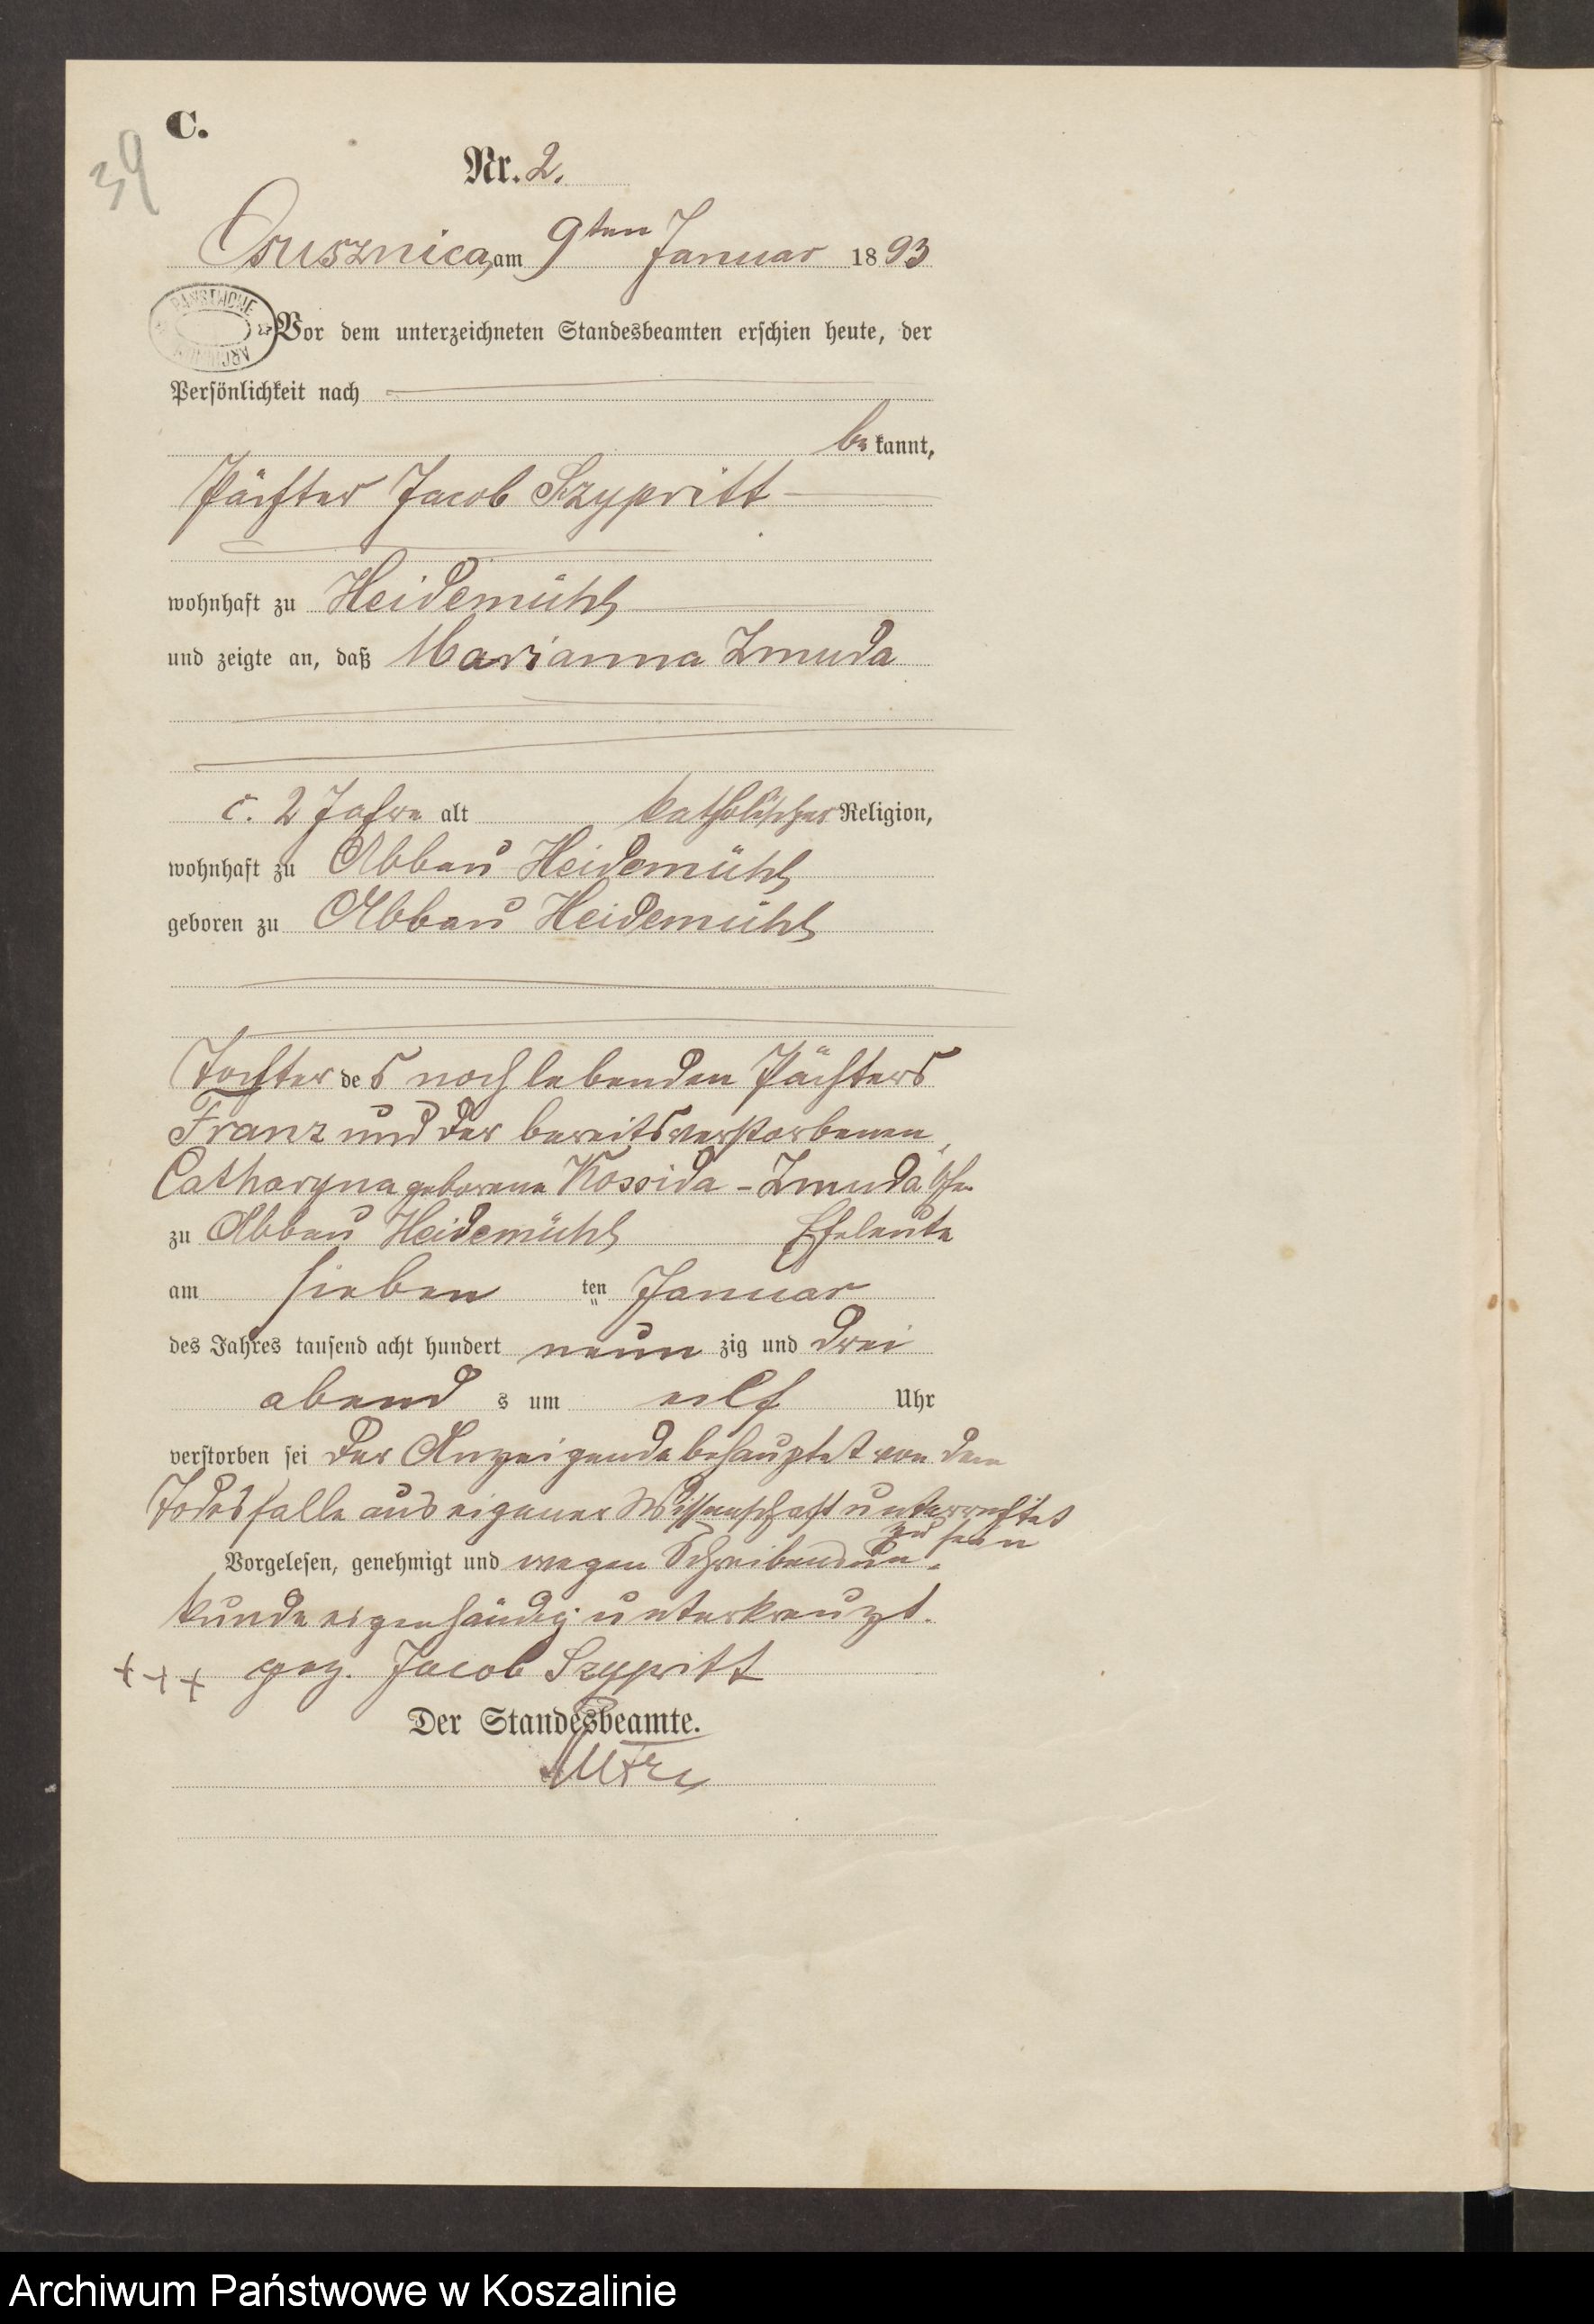 C.
39
Nr. 2.
Osusznica, am 9ten Januar 1893
PAŃSTWOWE ARCHIWUM
Vor dem unterzeichneten Standesbeamten erschien heute, der
Persönlichkeit nach
bekannt,
Pächter Jacob Szypritt
wohnhaft zu Heidemühl
und zeigte an, daß Marianna Zmuda
c. 2 Jahre alt katholischer Religion,
wohnhaft zu Abbau Heidemühl
geboren zu Abbau Heidemühl
Tochter des noch lebenden Pächters
Franz und der bereits verstorbenen
Catharyna geborene Kossida - Zmuda'sche
zu Abbau Heidemühl Eheleute
am sieben ten Januar
des Jahres tausend acht hundert neun zig und drei
abend s um elf Uhr
verstorben sei Der Anzeigende behauptet von dem
Todesfalle aus eigener Wissenschaft unterrichtet
zu sein
Vorgelesen, genehmigt und wegen Schreibensun-
kunde eigenhändig unterkreuzt.
+++ gez. Jacob Szypritt
Der Standesbeamte.
Archiwum Państwowe w Koszalinie